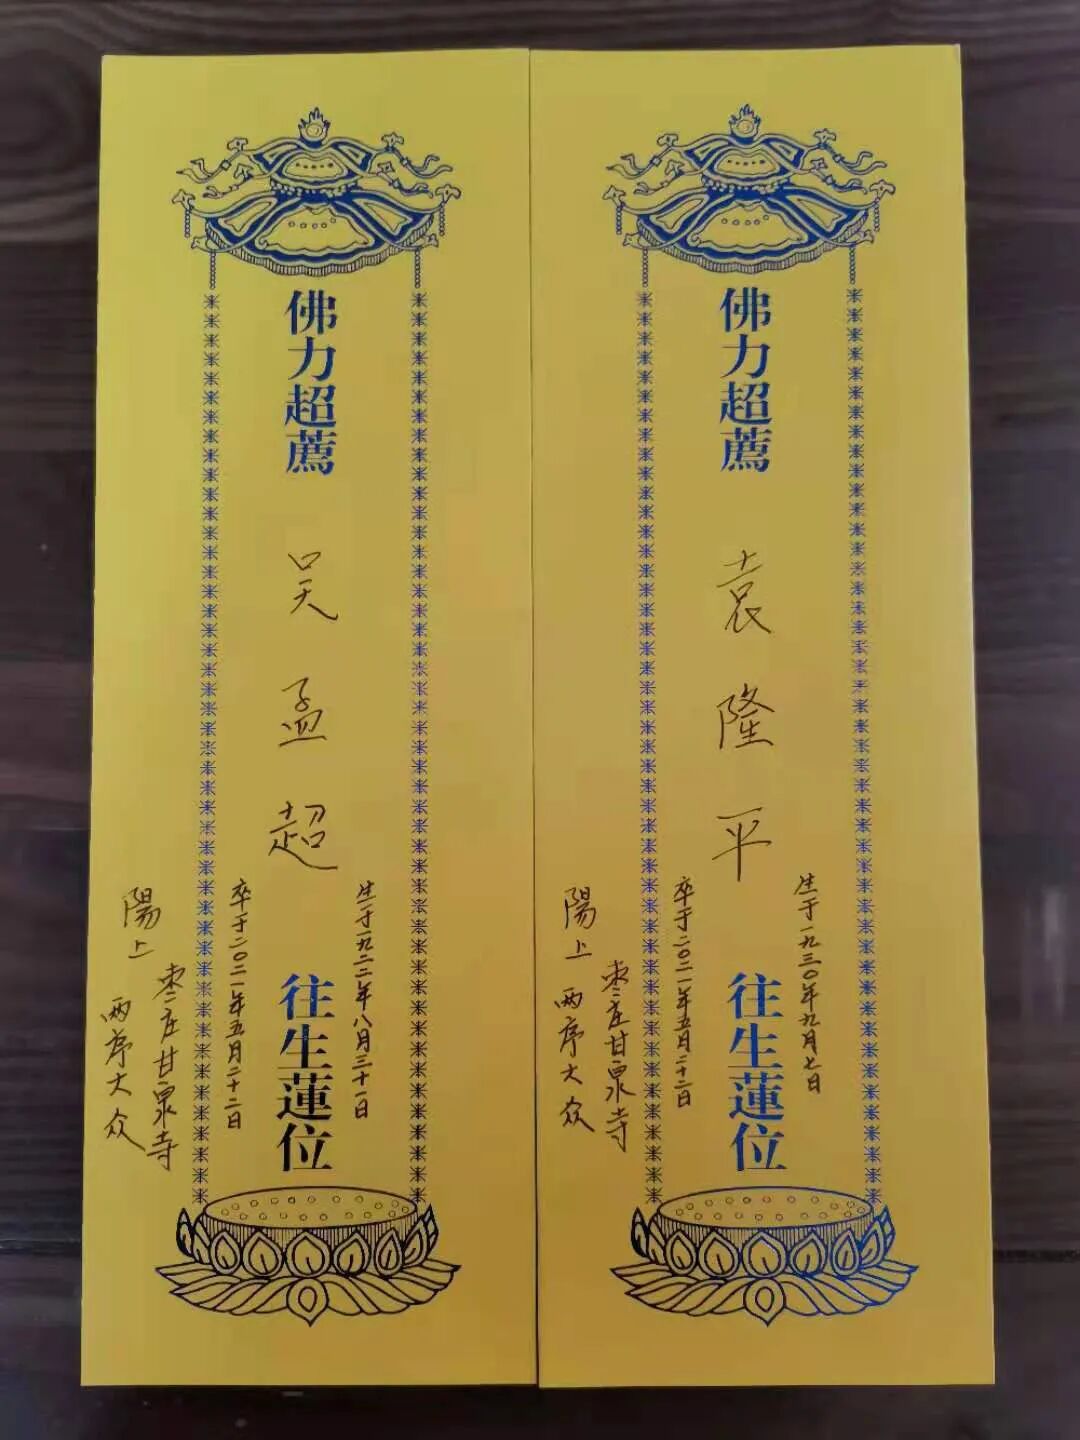 佛力超薦
吴孟超
往生蓮位
生于一九二二年八月三十一日
卒于二〇二一年五月二十二日
陽上
枣庄甘泉寺
两序大众
佛力超薦
袁隆平
往生蓮位
生于一九三〇年九月七日
卒于二〇二一年五月二十二日
陽上
枣庄甘泉寺
两序大众